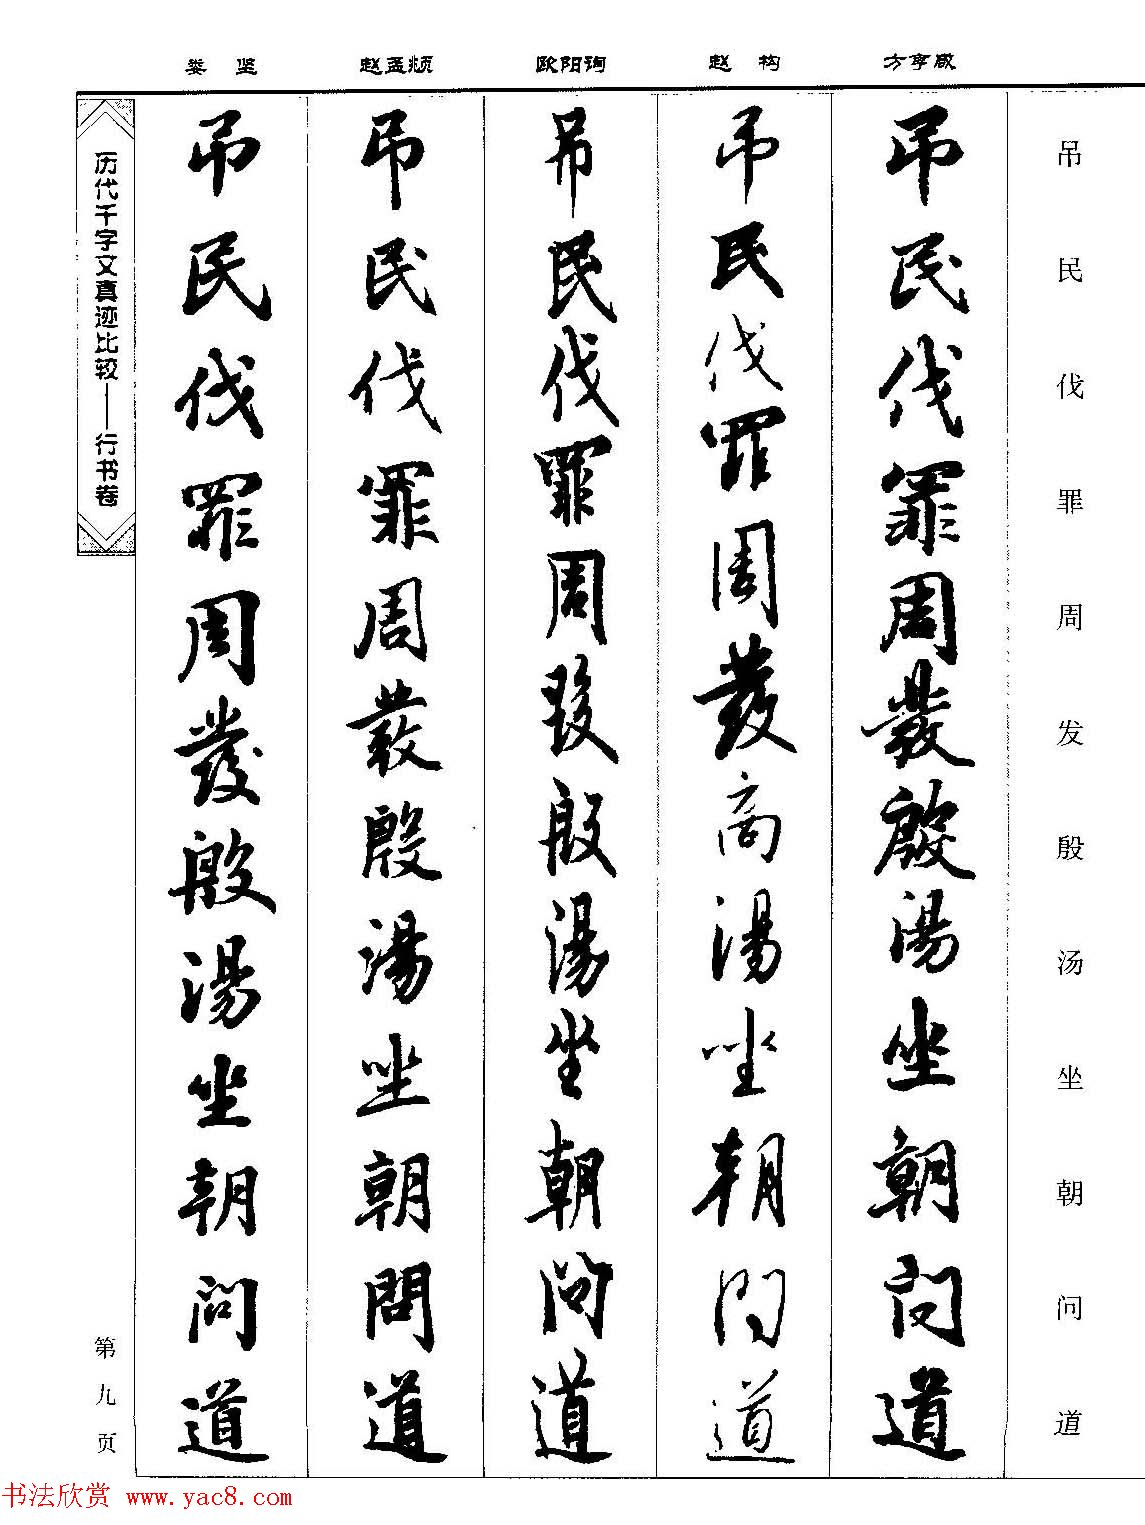 吊民伐罪周发殷汤坐朝问道
方亨咸
吊民伐罪周發殷湯坐朝問道
赵构
吊民伐罪周發商湯坐朝問道
欧阳询
吊民伐罪周發殷湯坐朝問道
赵孟頫
吊民伐罪周發殷湯坐朝問道
娄坚
吊民伐罪周發殷湯坐朝問道
历代千字文真迹比较——行书卷
第九页
书法欣赏 www.yac8.com